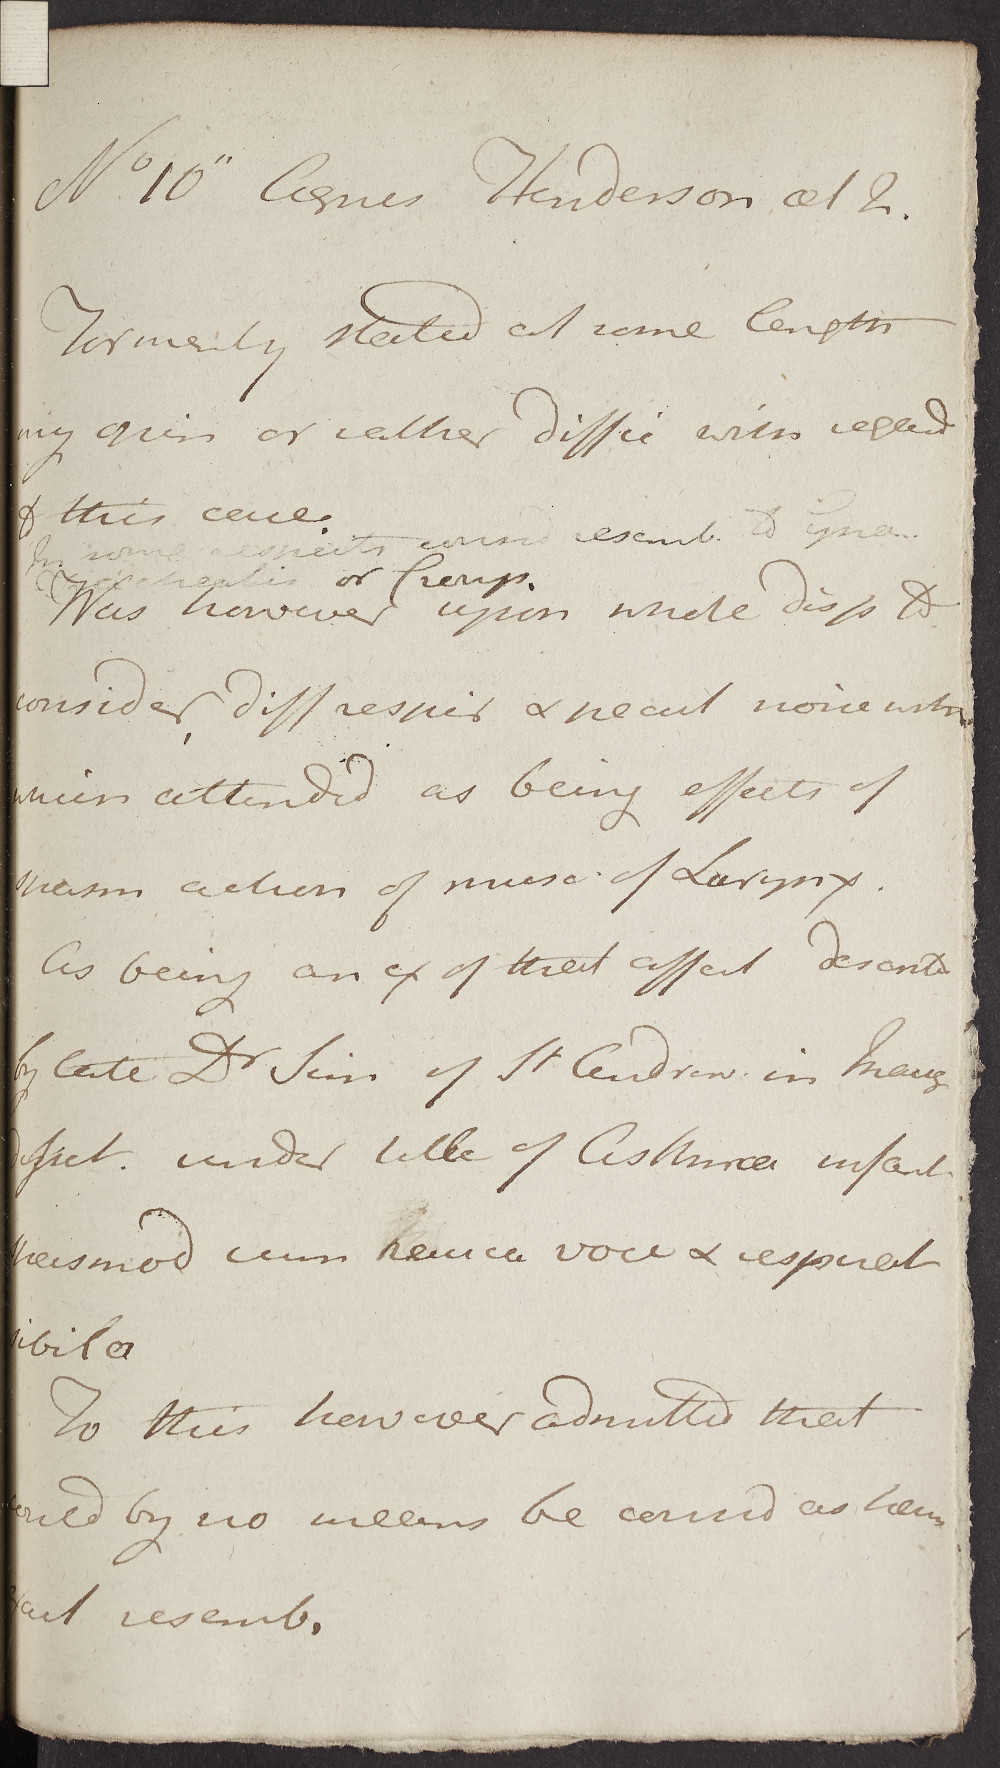 No 10" Agnes Henderson æt 2.
Formerly stated at some length
my opin or rather diffic with regard
to this case.
In some respects consid resemb. to Cynan.
Trachealis or Croup.
Was however upon whole disp to
consider diff respir & pecul noise with
which attended as being effects of
spasm action of musc. of Larynx.
As being an ex of that affect describ
by late Dr Sim of St Andrew. in Inaug
dissert. under title of Asthma infant
spasmod cum rauca voce & respirat
sibila
To this however admitted that
could by no means be consid as having
exact resemb.